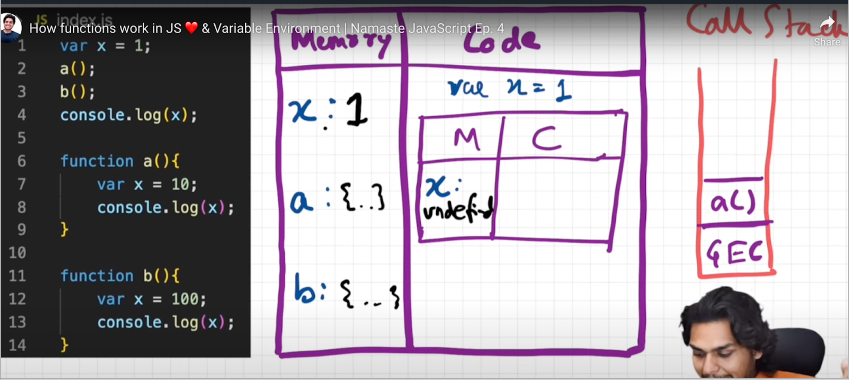 JS index.js
How functions work in JS ❤️ & Variable Environment | Namaste JavaScript Ep. 4
Share
1 var x = 1;
2 a();
3 b();
4 console.log(x);
5
6 function a(){
7 var x = 10;
8 console.log(x);
9 }
10
11 function b(){
12 var x = 100;
13 console.log(x);
14 }
Memory
Code
x : 1
a : {..}
b : {...}
var x = 1
M
C
x :
undefind
Call Stack
a()
GEC